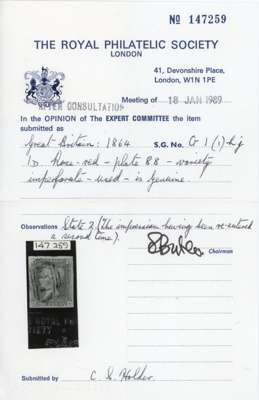 Nº 147259
THE ROYAL PHILATELIC SOCIETY
LONDON
41, Devonshire Place,
London, W1N 1PE
AFTER CONSULTATION
Meeting of 18 JAN 1989
In the OPINION of The EXPERT COMMITTEE the item
submitted as
Great Britain: 1864 S.G. No. G 1 (1) hg
1D. Rose-red – plate 88 – variety
imperforate – used – is genuine.
Observations State 2 (The impression having been re-entered
a second time).
Chairman
147 259
Submitted by C. S. Holder.